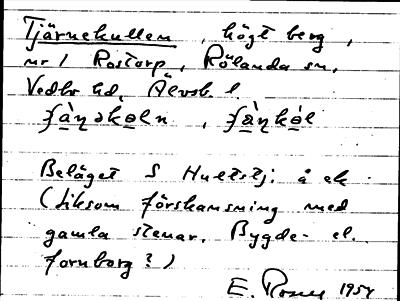 Tjärnekullen, högt berg,
nr 1 Rostorp, Rölanda sn,
Vedbo hd, Älvsb. l.
Beläget S Hultstj. å ek.
(liksom förskansning med
gamla stenar. Bygde- el.
fornborg?)
E. 1954